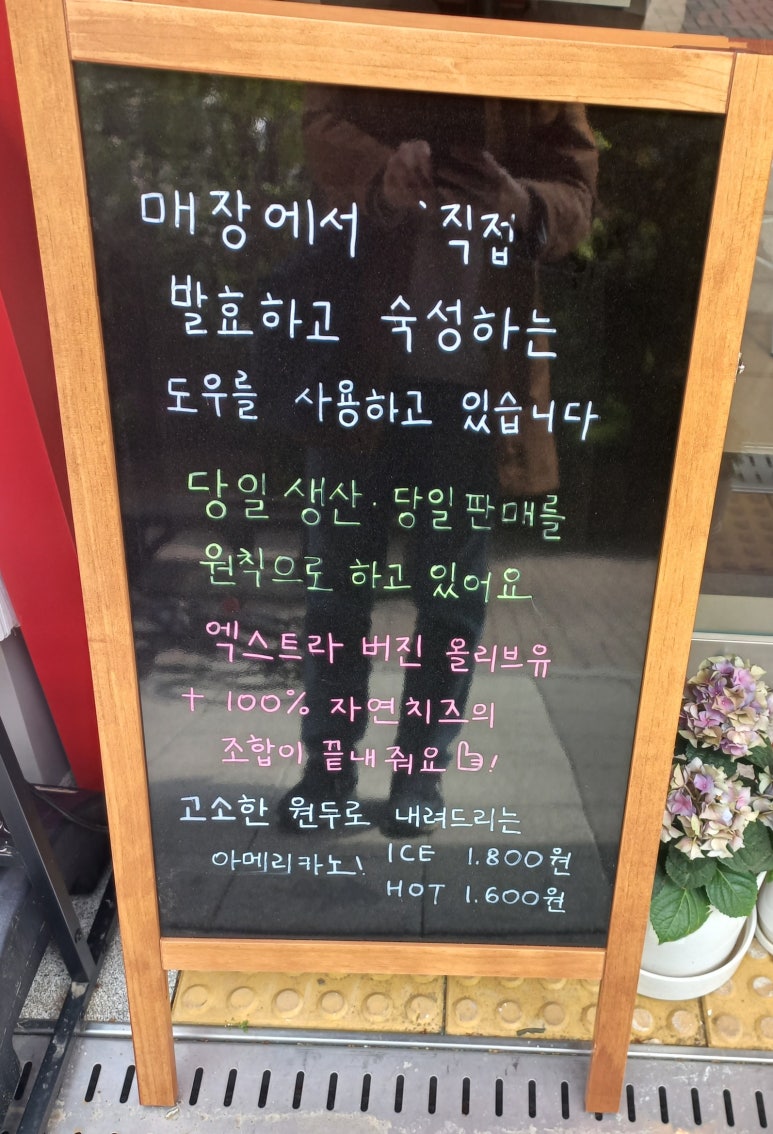 매장에서 '직접'
발효하고 숙성하는
도우를 사용하고 있습니다
당일 생산·당일판매를
원칙으로 하고 있어요
엑스트라 버진 올리브유
+ 100% 자연치즈의
조합이 끝내줘요👍!
고소한 원두로 내려드리는
아메리카노! ICE 1.800원
HOT 1.600원